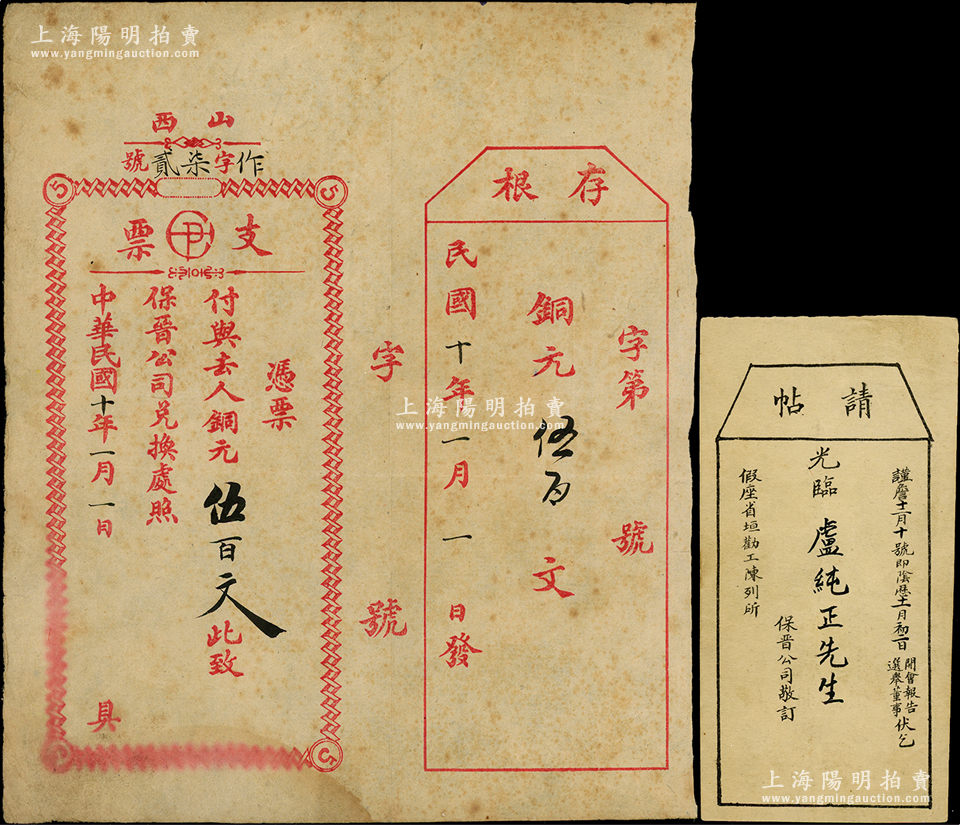 上海陽明拍賣
www.yangmingauction.com
山西
作字柒貳號
支票
憑票
付與去人銅元伍百文此致
保晉公司兌換處照
中華民國十年一月一日
具
5
5
5
字
號
存根
字第號
銅元伍百文
民國十年一月一日發
上海陽明拍賣
www.yangmingauction.com
請帖
謹詹十二月十號即陰歷十一月初二日
開會報告
選舉董事
伏乞
光臨
盧純正先生
保晉公司敬訂
假座省垣勸工陳列所
上海陽明拍賣
www.yangmingauction.com